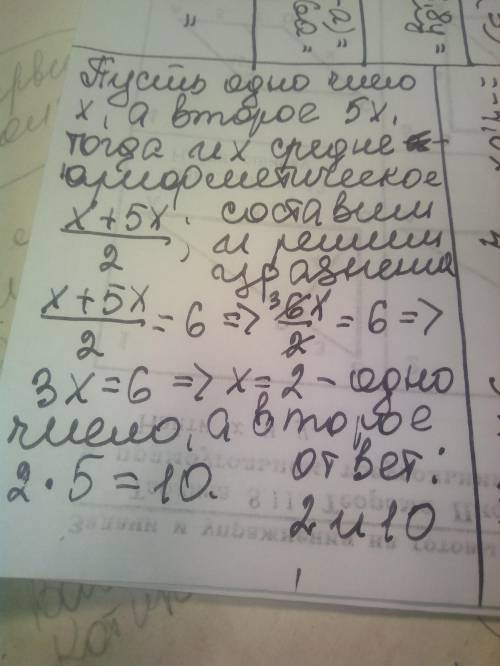 Пусть одно число
x, а второе 5x,
тогда их средне-
арифметическое
(x+5x)/2, составим
и решим
уравнение
(x+5x)/2 = 6 => 6x/2 = 6 =>
3x = 6 => x = 2 - одно
число, а второе
2 · 5 = 10. ответ:
2 и 10